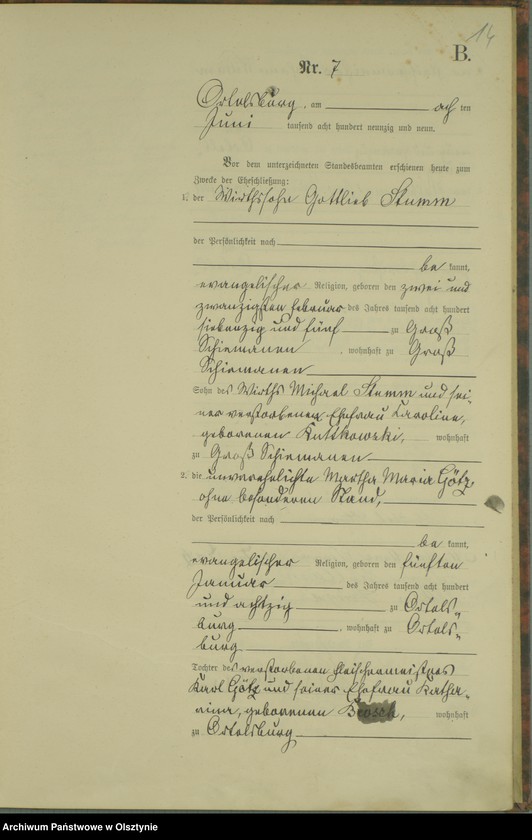 14
B.
Nr. 7
Ortelsburg, am ach ten
Juni tausend acht hundert neunzig und neun.
Vor dem unterzeichneten Standesbeamten erschienen heute zum
Zwecke der Eheschließung:
1. der Wirthssohn Gottlieb Stumm
der Persönlichkeit nach
be kannt,
evangelischer Religion, geboren den zwei und
zwanzigsten Februar des Jahres tausend acht hundert
siebenzig und fünf zu Groß
Schiemanen, wohnhaft zu Groß
Schiemanen
Sohn des Wirths Michael Stumm und sei-
ner verstorbenen Ehefrau Karoline,
geborenen Kuttkowski, wohnhaft
zu Groß Schiemanen
2. die unverehelichte Martha Maria Götz
ohne besonderen Stand,
der Persönlichkeit nach
be kannt,
evangelischer Religion, geboren den fünften
Januar des Jahres tausend acht hundert
und achtzig zu Ortels-
burg, wohnhaft zu Ortels-
burg
Tochter des verstorbenen Fleischermeisters
Karl Götz und seiner Ehefrau Katha-
rina, geborenen wohnhaft
zu Ortelsburg
Archiwum Państwowe w Olsztynie